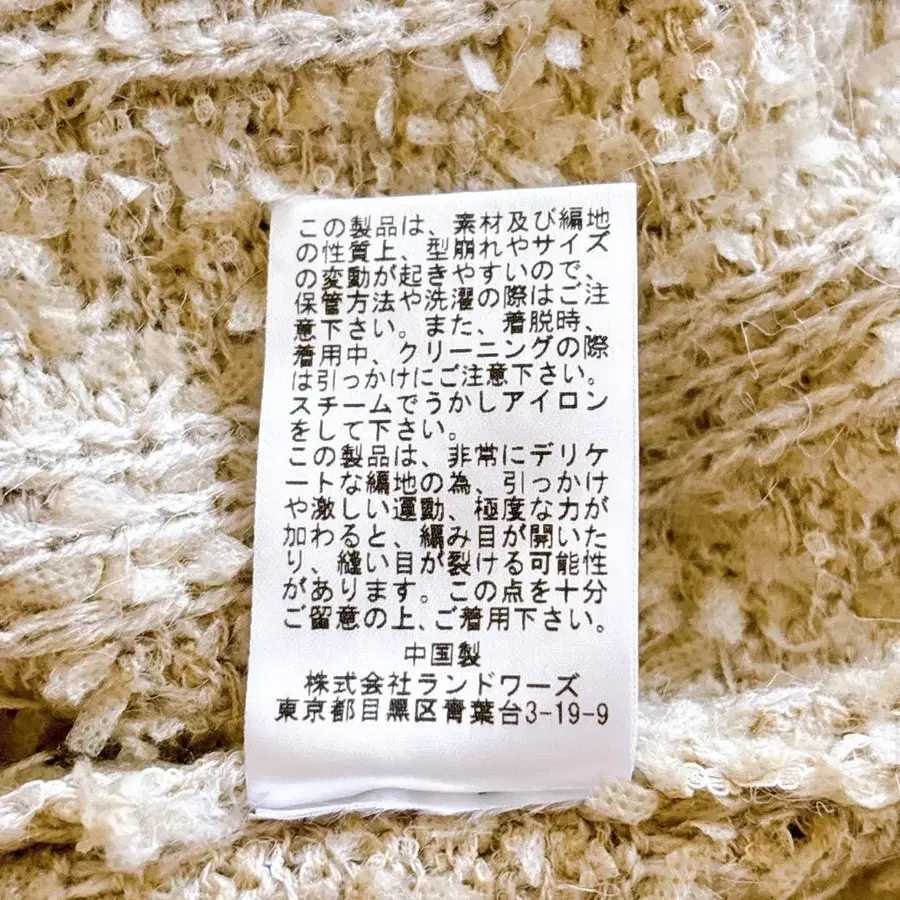 この製品は、素材及び編地
の性質上、型崩れやサイズ
の変動が起きやすいので、
保管方法や洗濯の際はご注
意下さい。また、着脱時、
着用中、クリーニングの際
は引っかけにご注意下さい。
スチームでうかしアイロン
をして下さい。
この製品は、非常にデリケ
ートな編地の為、引っかけ
や激しい運動、極度な力が
加わると、編み目が開いた
り、縫い目が裂ける可能性
があります。この点を十分
ご留意の上、ご着用下さい。
中国製
株式会社ランドワーズ
東京都目黒区青葉台3-19-9